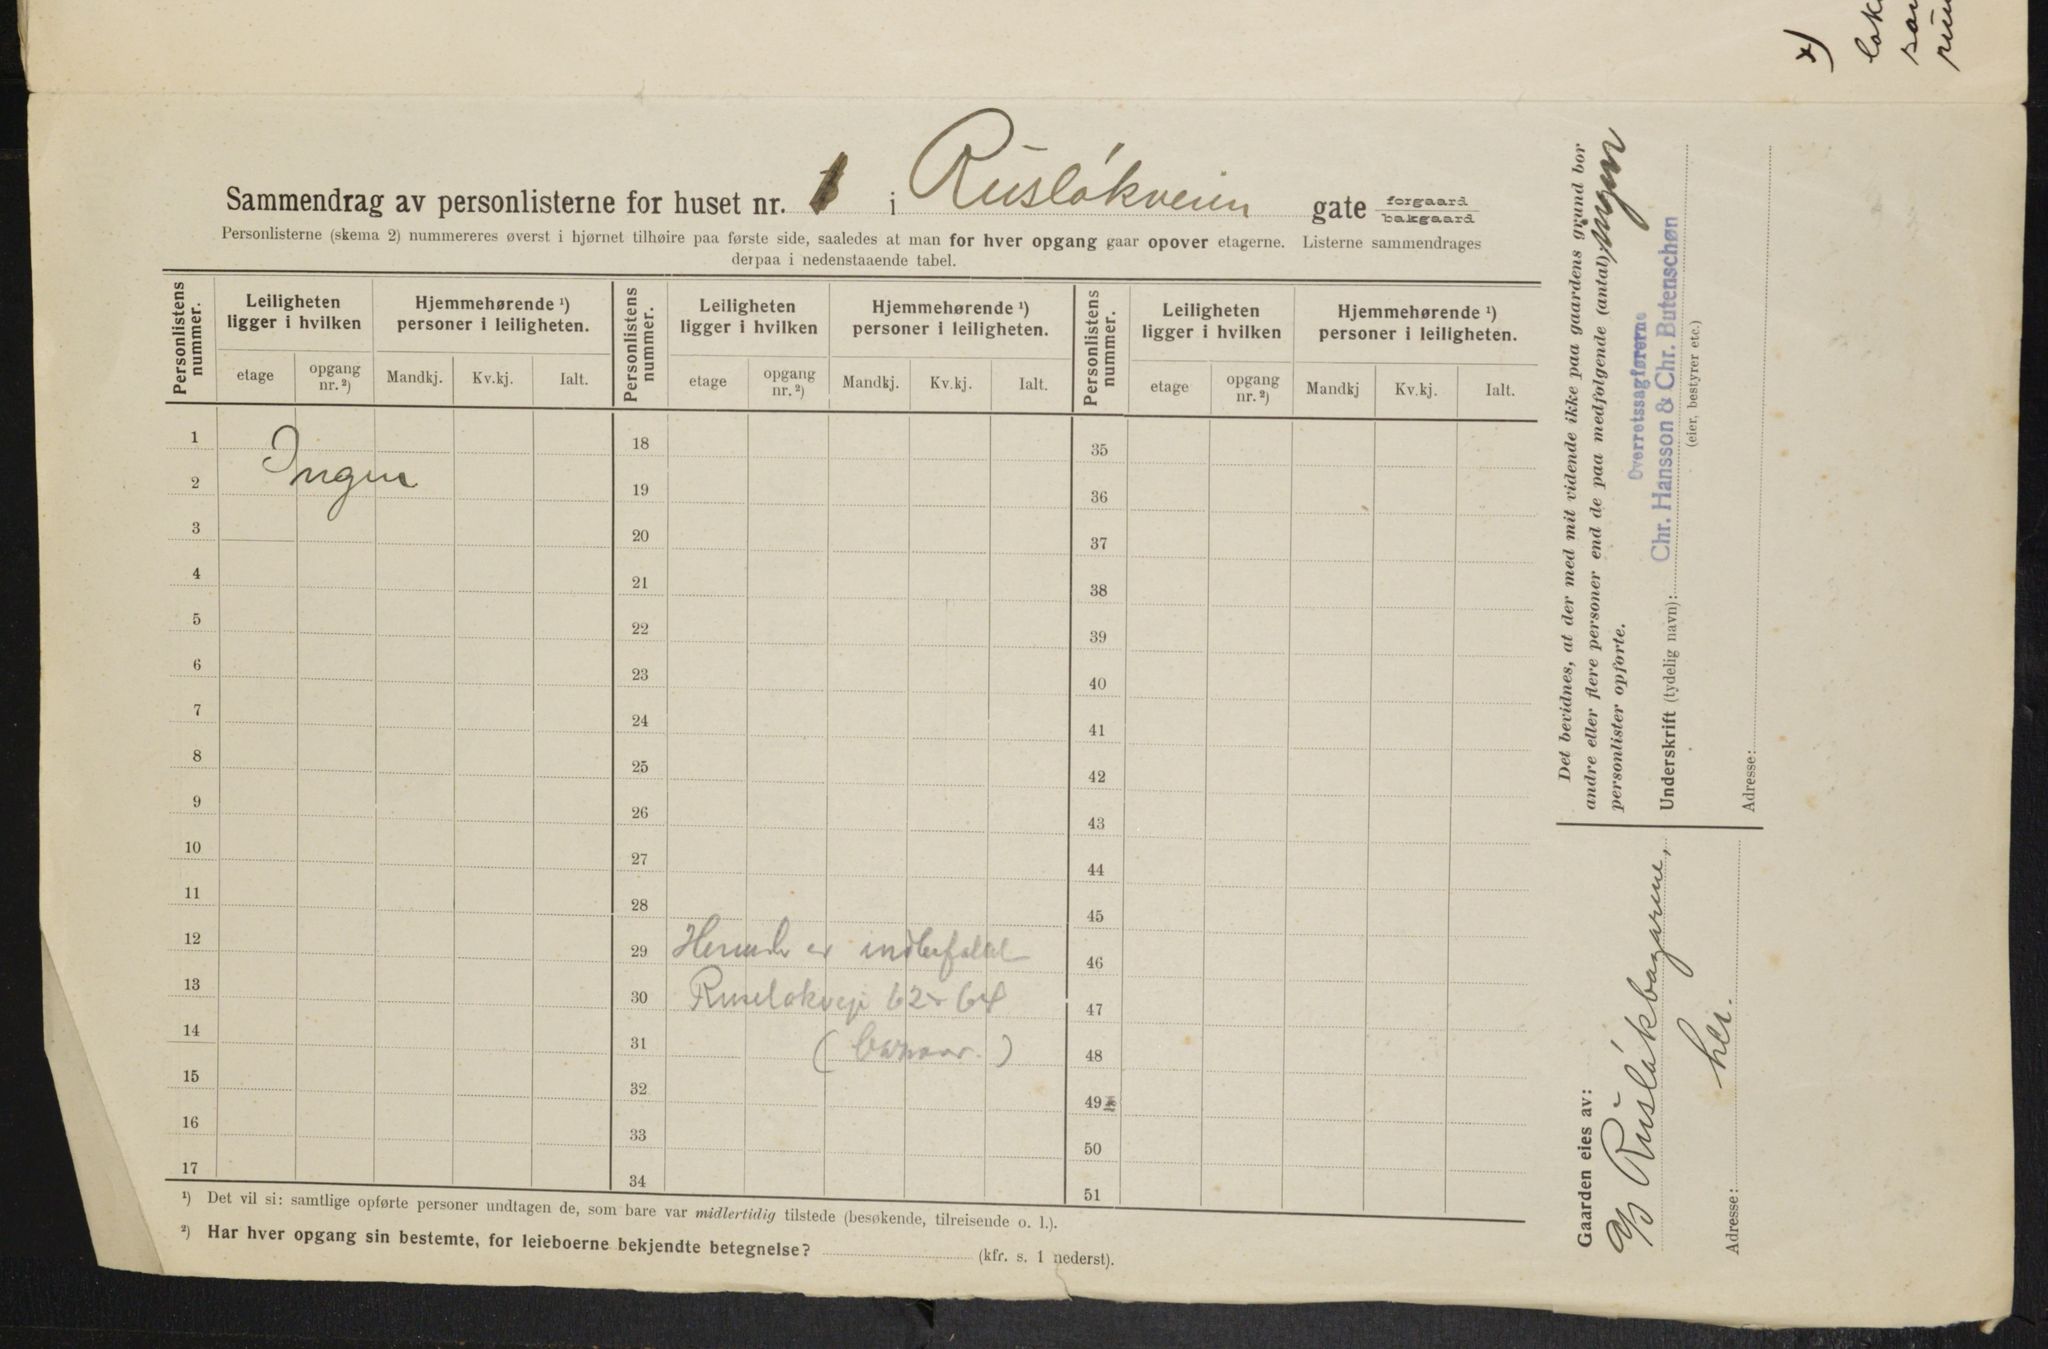 Sammendrag av personlisterne for huset nr. i Rusløkveien gate forgaard bakgaard
Personlisterne (skema 2) nummereres øverst i hjørnet tilhøire paa første side, saaledes at man for hver opgang gaar opover etagerne. Listerne sammendrages
derpaa i nedenstaaende tabel.
Personlistens nummer. Leiligheten ligger i hvilken Hjemmehørende ¹) personer i leiligheten. Personlistens nummer. Leiligheten ligger i hvilken Hjemmehørende ¹) personer i leiligheten. Personlistens nummer. Leiligheten ligger i hvilken Hjemmehørende ¹) personer i leiligheten.
etage opgang nr. ²) Mandkj. Kv.kj. Ialt. etage opgang nr. ²) Mandkj. Kv.kj. Ialt. etage opgang nr. ²) Mandkj Kv.kj. Ialt.
1 18 35
Ingen
2 19 36
3 20 37
4 21 38
5 22 39
6 23 40
7 24 41
8 25 42
9 26 43
10 27 44
11 28 45
12 29 Herunder er indbefattet 46
13 30 Ruseløkvei 62 64 47
14 31 (basaar.) 48
15 32 49
16 33 50
17 34 51
¹) Det vil si: samtlige opførte personer undtagen de, som bare var midlertidig tilstede (besøkende, tilreisende o. l.).
²) Har hver opgang sin bestemte, for leieboerne bekjendte betegnelse? (kfr. s. 1 nederst).
Det bevidnes, at der med mit vidende ikke paa gaardens grund bor
andre eller flere personer end de paa medfølgende (antal) Ingen
personlister opførte.
Overretssagførerne
Chr. Hansson & Chr. Butenschøn
Underskrift (tydelig navn):
(eier, bestyrer etc.)
Adresse:
Gaarden eies av:
A/S Rusløkbazarene,
her.
Adresse:
x)